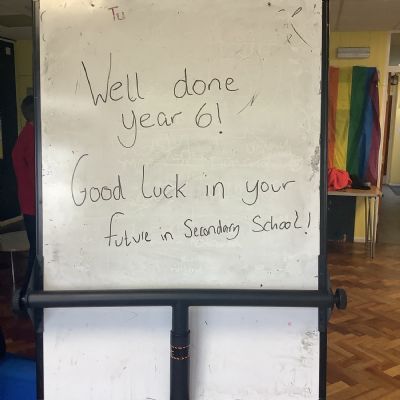 Tu
Well done
year 6!
Good luck in your
future in Secondary School!